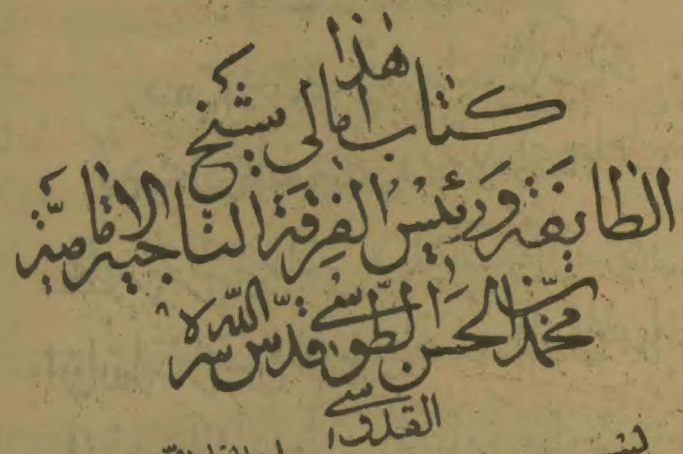 هذا
كتاب امالى شيخ
الطايفة ورئيس الفرقة الناجية الامامية
محمد بن الحسن الطوسى قدس الله سره
القدوسى